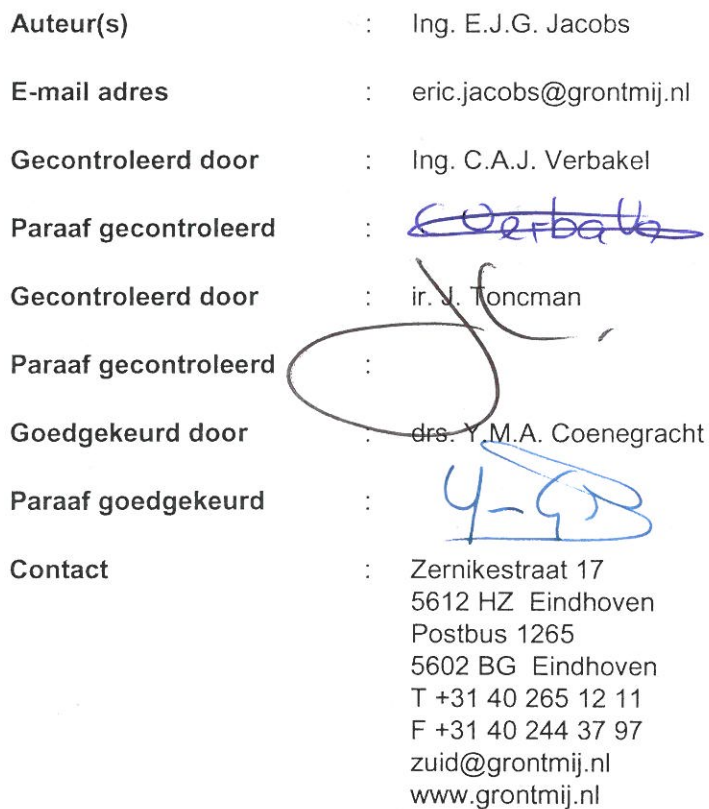 Auteur(s) : Ing. E.J.G. Jacobs
E-mail adres : eric.jacobs@grontmij.nl
Gecontroleerd door : Ing. C.A.J. Verbakel
Paraaf gecontroleerd :
Gecontroleerd door : ir. J. Toncman
Paraaf gecontroleerd :
Goedgekeurd door : drs. Y.M.A. Coenegracht
Paraaf goedgekeurd :
Contact : Zernikestraat 17
5612 HZ Eindhoven
Postbus 1265
5602 BG Eindhoven
T +31 40 265 12 11
F +31 40 244 37 97
zuid@grontmij.nl
www.grontmij.nl